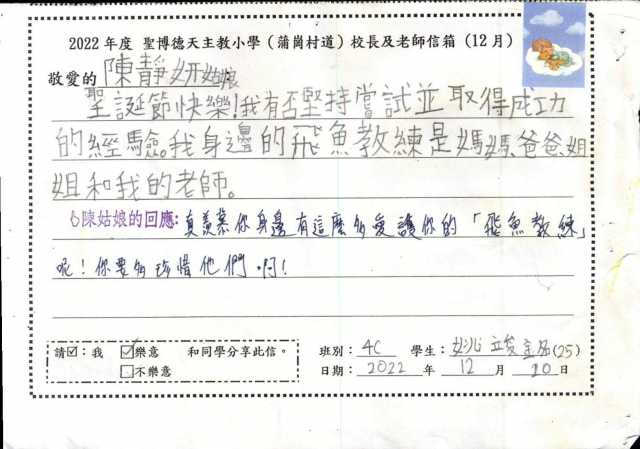 2022年度 聖博德天主教小學（蒲崗村道）校長及老師信箱（12月）
敬愛的 陳靜妍姑娘
聖誕節快樂！我有否堅持嘗試並取得成功
的經驗。我身邊的飛魚教練是媽媽、爸爸、姐
姐和我的老師。
陳姑娘的回應：真羨慕你身邊有這麼多愛護你的「飛魚教練」
呢！你要多珍惜他們啊！
請☑：我 ☑樂意 和同學分享此信。
□不樂意
班別：4C 學生：姚 (25)
日期：2022 年 12 月 20 日